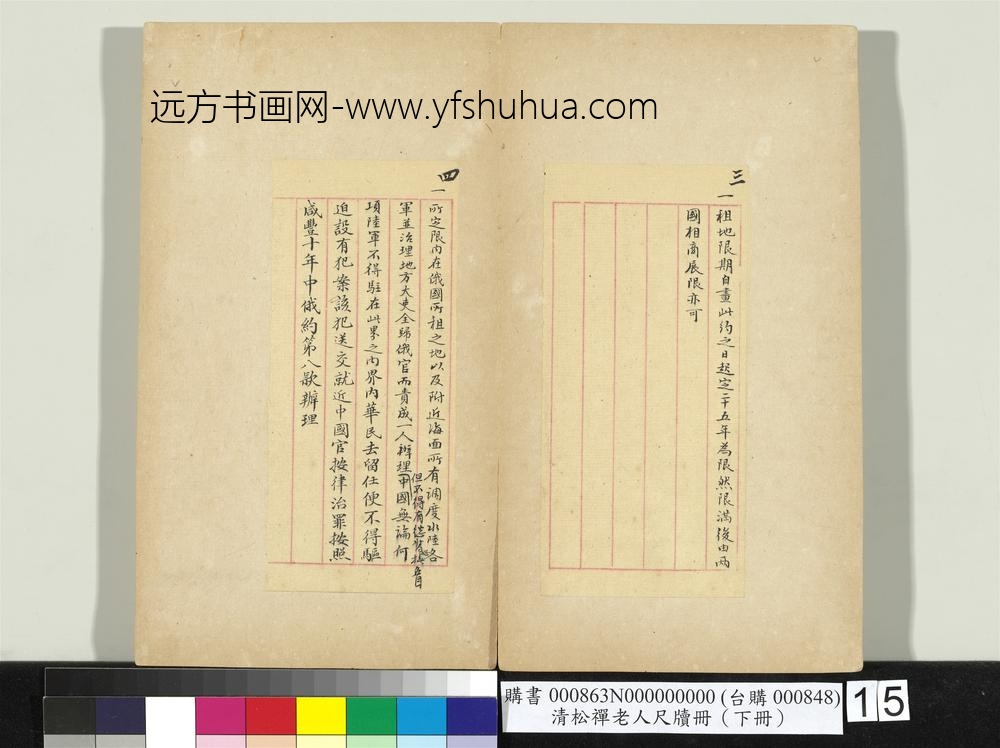 远方书画网-www.yfshuhua.com
三
一租地限期自畫此約之日起定二十五年為限然限滿後由兩
國相商展限亦可
四
一所定限內在俄國所租之地以及附近海面所有調度水陸各
軍並治理地方大吏全歸俄官而責成一人辦理中國無論何
但不得有總督巡撫名目
項陸軍不得駐在此界之內界內華民去留任便不得驅
迫設有犯案該犯送交就近中國官按律治罪按照
咸豐十年中俄約第八款辦理
購書 000863N000000000 (台購 000848)
清松禪老人尺牘冊（下冊）
15